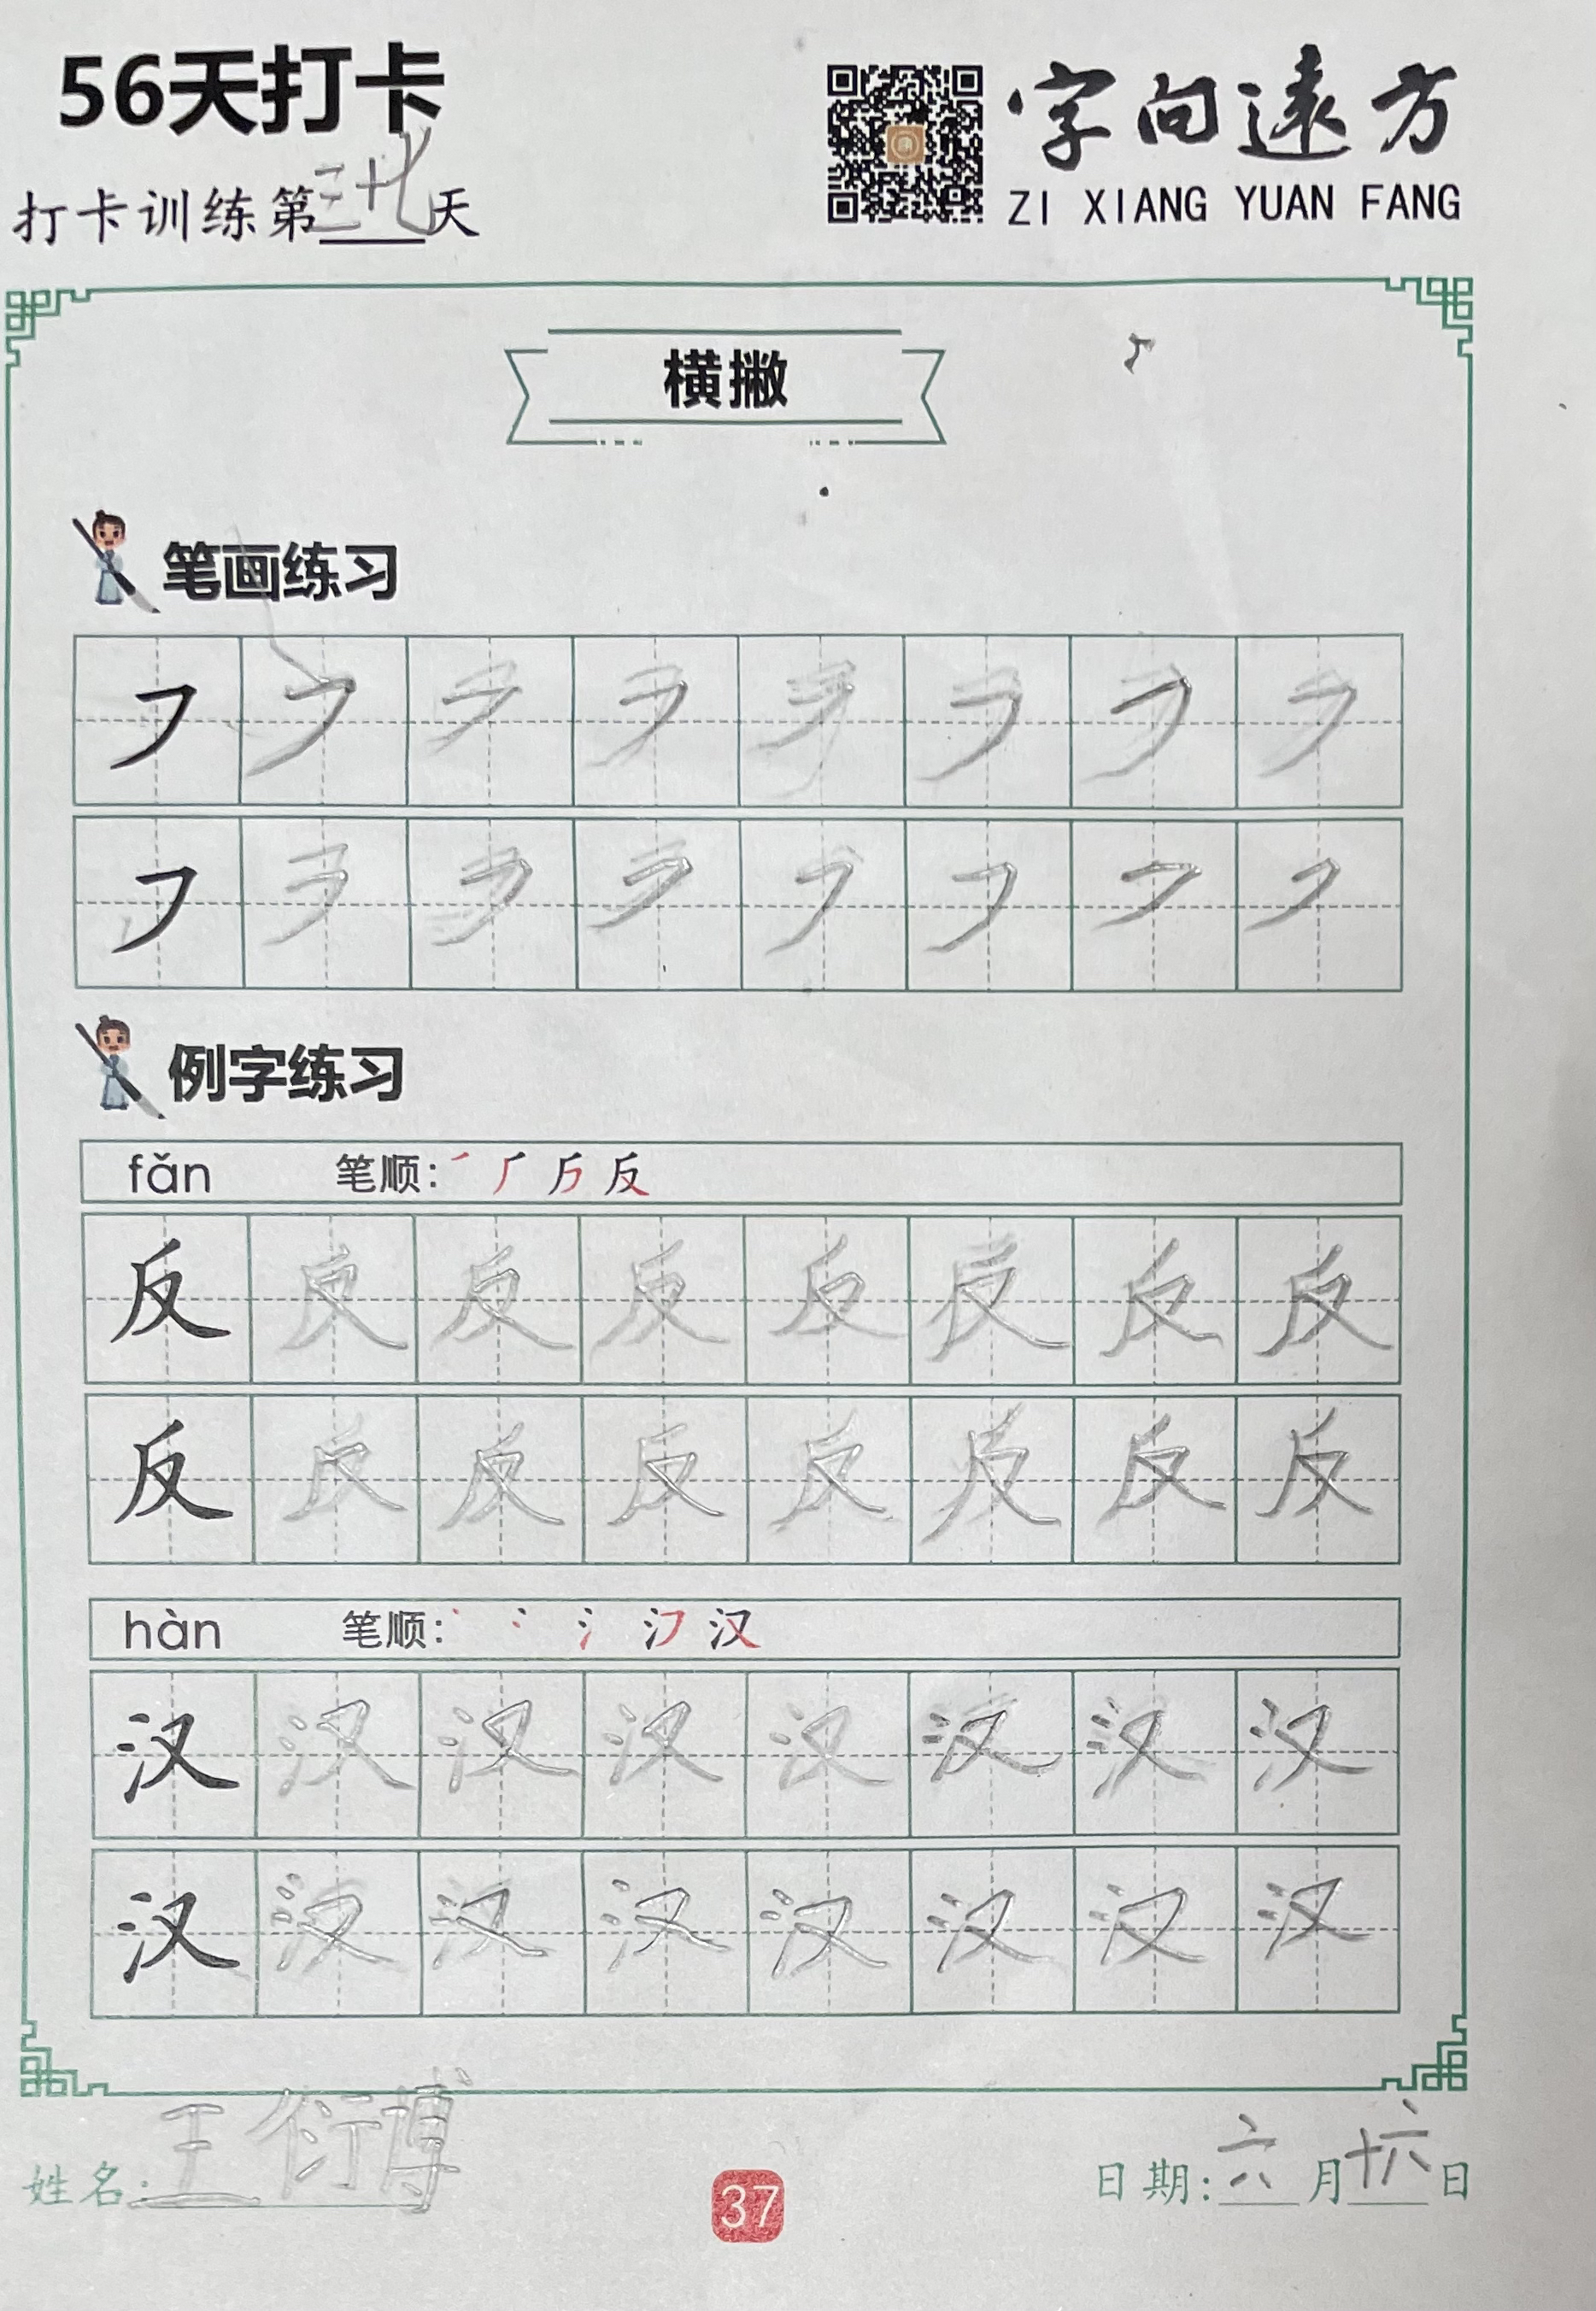 56天打卡
字向遠方
ZI XIANG YUAN FANG
打卡训练第三十七天
横撇
笔画练习
㇇ ㇇ ㇇ ㇇ ㇇ ㇇ ㇇ ㇇
㇇ ㇇ ㇇ ㇇ ㇇ ㇇ ㇇ ㇇
例字练习
fǎn 笔顺: 反
反 反 反 反 反 反 反 反
反 反 反 反 反 反 反 反
hàn 笔顺: 汉
汉 汉 汉 汉 汉 汉 汉 汉
汉 汉 汉 汉 汉 汉 汉 汉
姓名:王衍博
37
日期:六月十六日